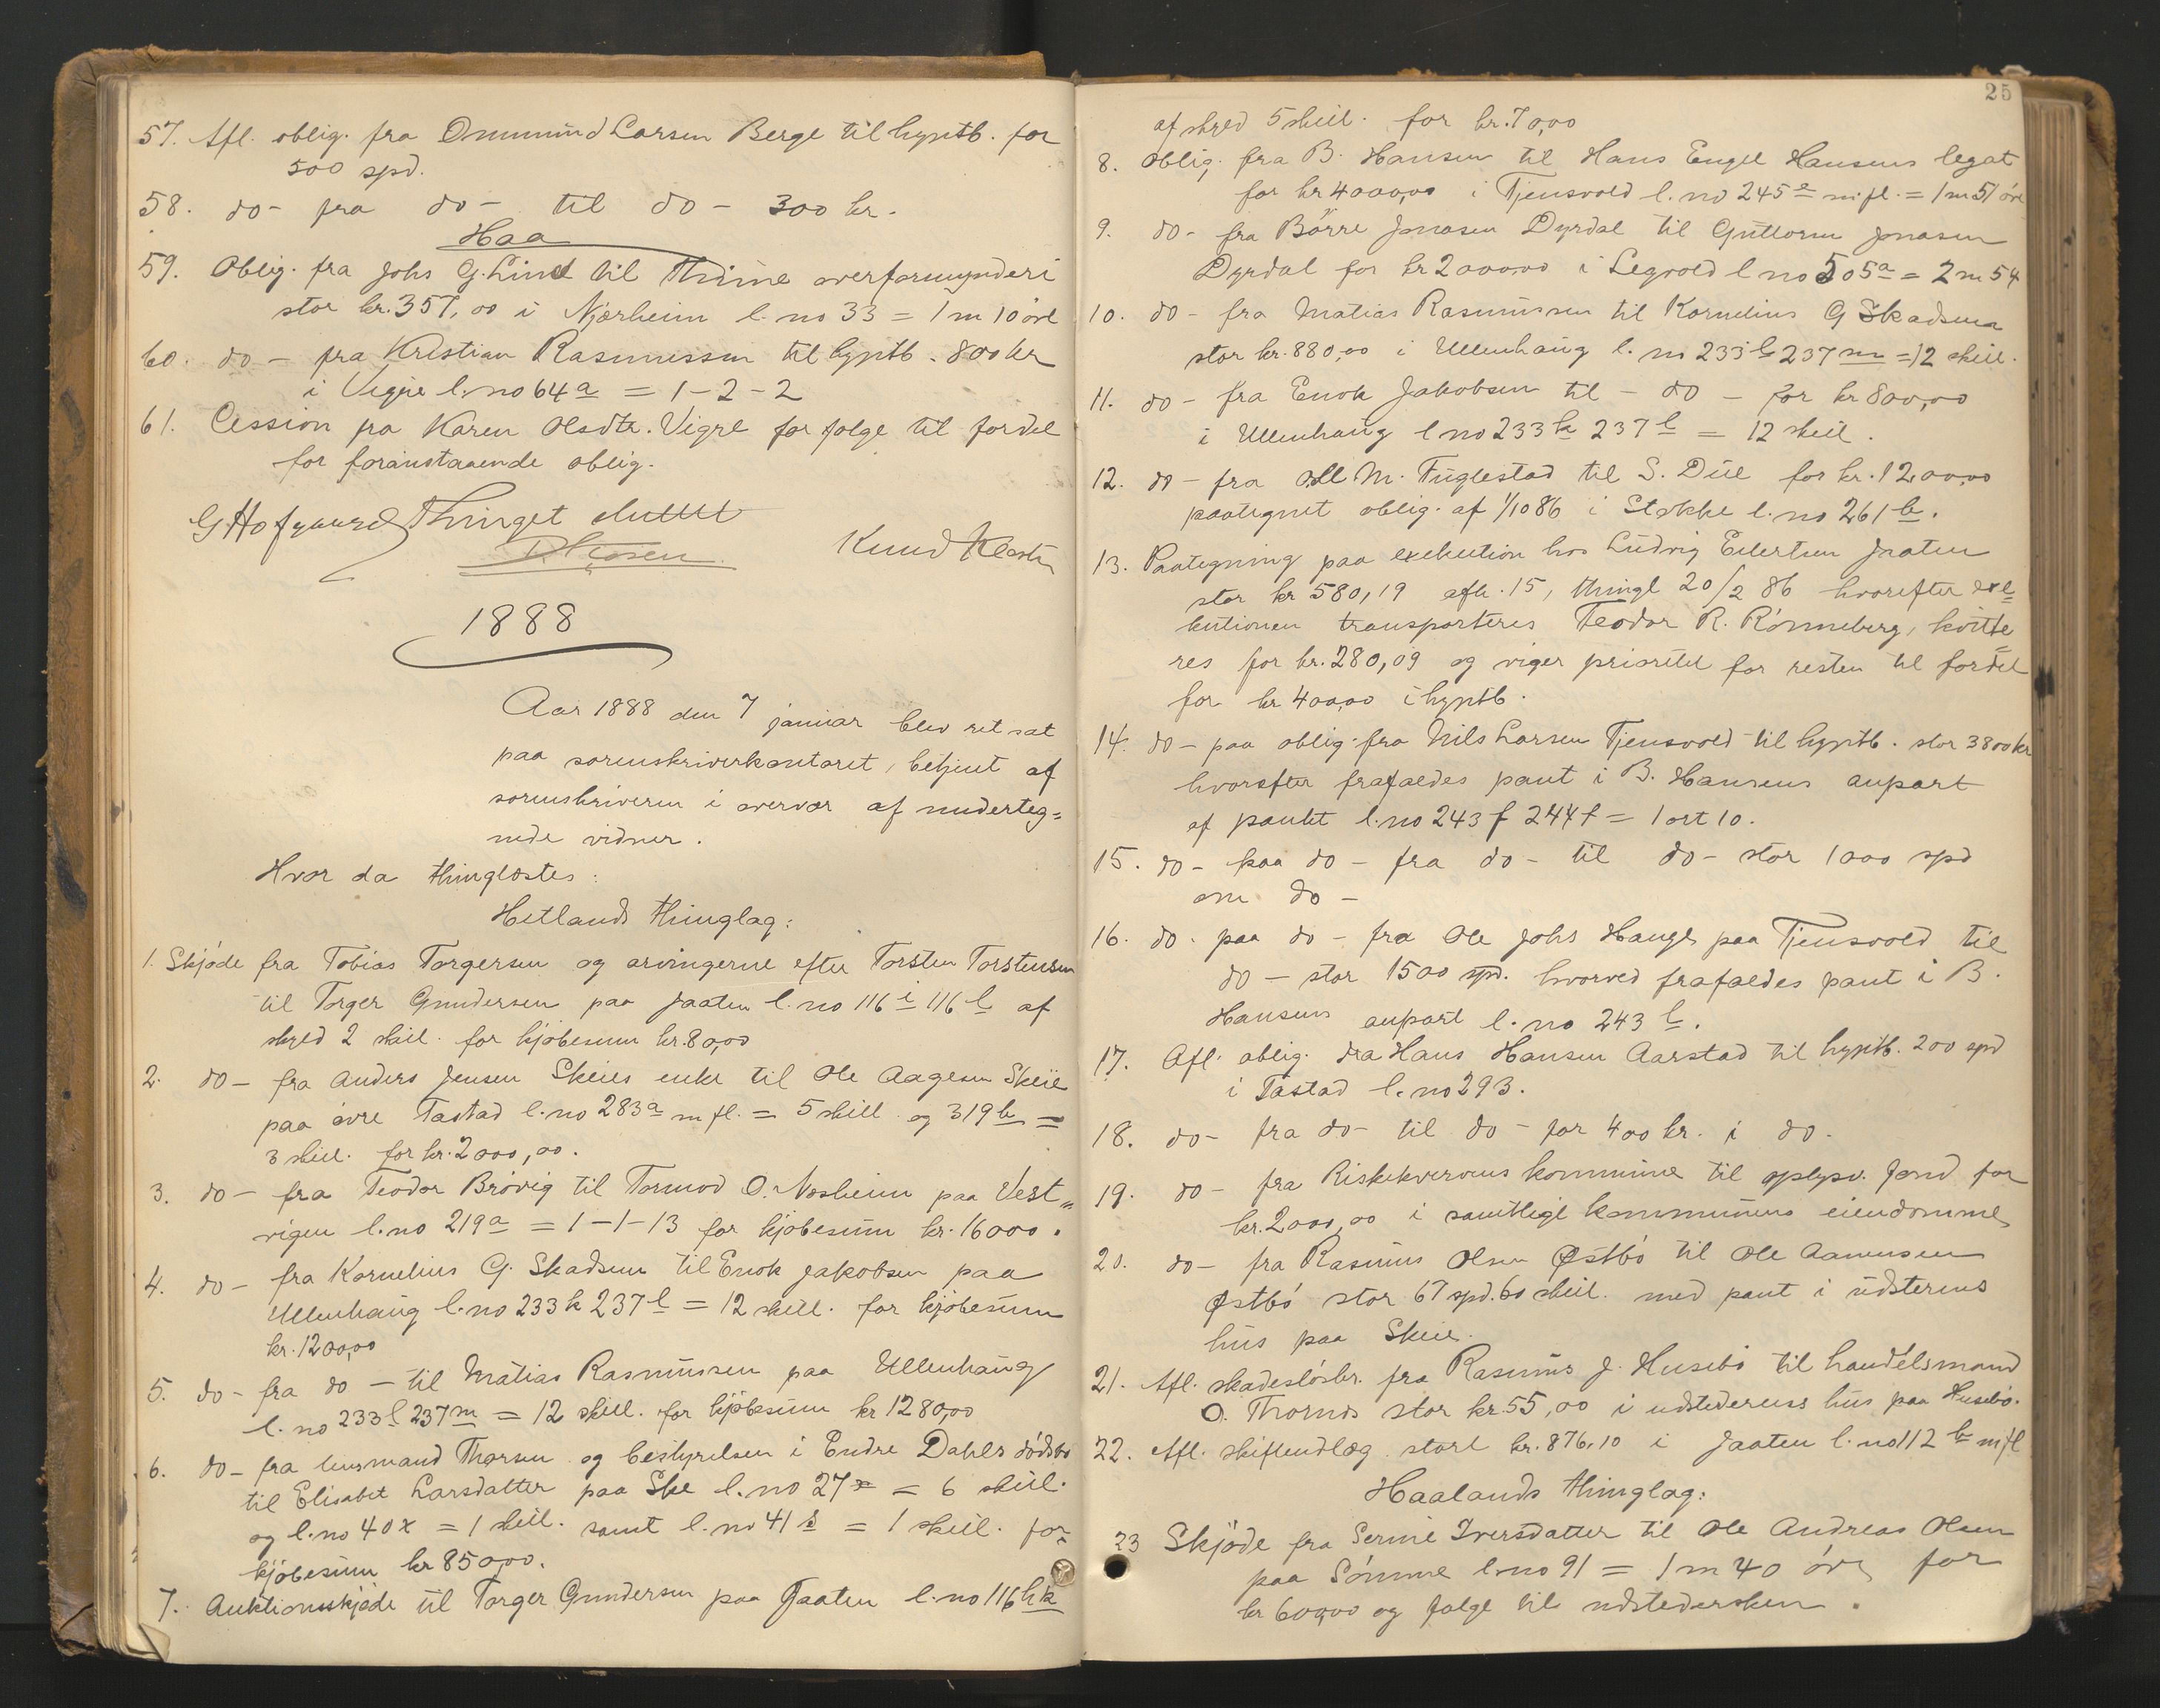 57. Afl. oblig. fra Ommund Larsen Berge til hyptb. for
500 spd.
58. do - fra do - til do - 300 kr.
Haa
59. Oblig. fra Johs G. Lind til Thime overformynderi
stor kr. 357,00 i Njærheim l. no 33 = 1 m 10 øre
60. do - fra Kristian Rasmussen til hyptb. 800 kr
i Vigre l. no 64 a = 1-2-2
61. Cession fra Karen Olsdtr. Vigre for folge til fordel
for foranstaaende oblig.
Thinget sluttet
G Hofgaard
Knud
1888
Aar 1888 den 7 januar blev ret sat
paa sorenskriverkontoret, betjent af
sorenskriveren i overvær af underteg=
nede vidner.
Hvor da thinglæstes:
Hetlands thinglag:
1. Skjöde fra Tobias Torgersen og arvingerne efter Torsten Torstensen
til Torger Gundersen paa Jaaten l. no 116 i 116 l af
skyld 2 skill. for kjöbesum kr. 80,00
2. do - fra Anders Jensen Skeies enke til Ole Aagesen Skeie
paa övre Tastad l. no 283 a m fl. = 5 skill. og 319 b =
3 skill. for kr. 2000,00.
3. do - fra Teodor Brövig til Tormod O. Næsheim paa Vest=
vigen l. no 219 a = 1-1-13 for kjöbesum kr. 16000.
4. do - fra Kornelius G. Skadsem til Enok Jakobsen paa
Ullenhaug l. no 233 k 237 l = 12 skill. for kjöbesum
kr. 1200,00
5. do - fra do - til Matias Rasmussen paa Ullenhaug
l. no 233 l 237 m = 12 skill. for kjöbesum kr 1280,00
6. do - fra lensmand Thorsen og bestyrelsen i Endre Dahles dödsbo
til Elisabet Larsdatter paa Ske l. no 27 x = 6 skill.
og l. no 40 x = 1 skill. samt l. no 41 s = 1 skill. for
kjöbesum kr 850,00.
7. Auktionsskjöde til Torger Gundersen paa Jaaten l. no 116 h k
25
af skyld 5 skill. for kr. 70,00
8. Oblig. fra B. Hansen til Hans Engel Hansens legat
for kr 4000,00 i Tjensvold l. no 245 e m fl. = 1 m 51 öre
9. do - fra Börre Jonasen Dyrdal til Guttorm Jonasen
Dyrdal for kr 2000,00 i Legvold l no 505 a = 2 m 54
10. do - fra Matias Rasmussen til Kornelius G Skadsem
stor kr. 880,00 i Ullenhaug l. no 233 l 237 m = 12 skill.
11. do - fra Enok Jakobsen til - do - for kr 800,00
i Ullenhaug l no 233 k 237 l = 12 skill.
12. do - fra Ole M. Fuglestad til S. Due for kr. 1200,00
paategnet oblig. af 1/10 86 i Stokke l. no 261 b.
13. Paategning paa exekution hos Ludvig Eilertsen Jaaten
stor kr 580,19 efter 15, thingl 20/2 86 hvorefter exe=
kutionen transporteres Teodor R. Rönneberg, kvitte=
res for kr. 280,09 og viger prioritet for resten til fordel
for kr 400,00 i hyptb.
14. do - paa oblig. fra Nils Larsen Tjensvold til hyptb. stor 3800 kr
hvorefter frafaldes pant i B. Hansens anpart
af pantet l. no 243 f 244 f = 1 ort 10.
15. do - paa do - fra do - til do - stor 1000 spd
om do -
16. do. paa do - fra Ole Johs Hauge paa Tjensvold til
do - stor 1500 spd. hvorved frafaldes pant i B.
Hansens anpart l. no 243 l.
17. Afl. oblig. fra Hans Hansen Aarstad til hyptb. 200 spd
i Tastad l. no 293.
18. do - fra do - til do - for 400 kr. i do.
19. do - fra Riskekvervens kommune til oplysn. fond for
kr. 2000,00 i samtlige kommunens eiendomme
20. do - fra Rasmus Olsen Østbö til Ole Aamunsen
Østbö stor 67 spd. 60 skill. med pant i udsterens
hus paa Skeie.
21. Afl. skadeslösbr. fra Rasmus J. Husebö til handelsmand
O. Thornes stor kr. 55,00 i udstederens hus paa Husebö.
22. Afl. skifteudlæg stort kr. 876,10 i Jaaten l. no 112 b m fl
Haalands thinglag:
23 Skjöde fra Serine Iversdatter til Ole Andreas Olsen
paa Sömme l. no 91 = 1 m 40 öre for
kr 600,00 og folge til udstedersken.